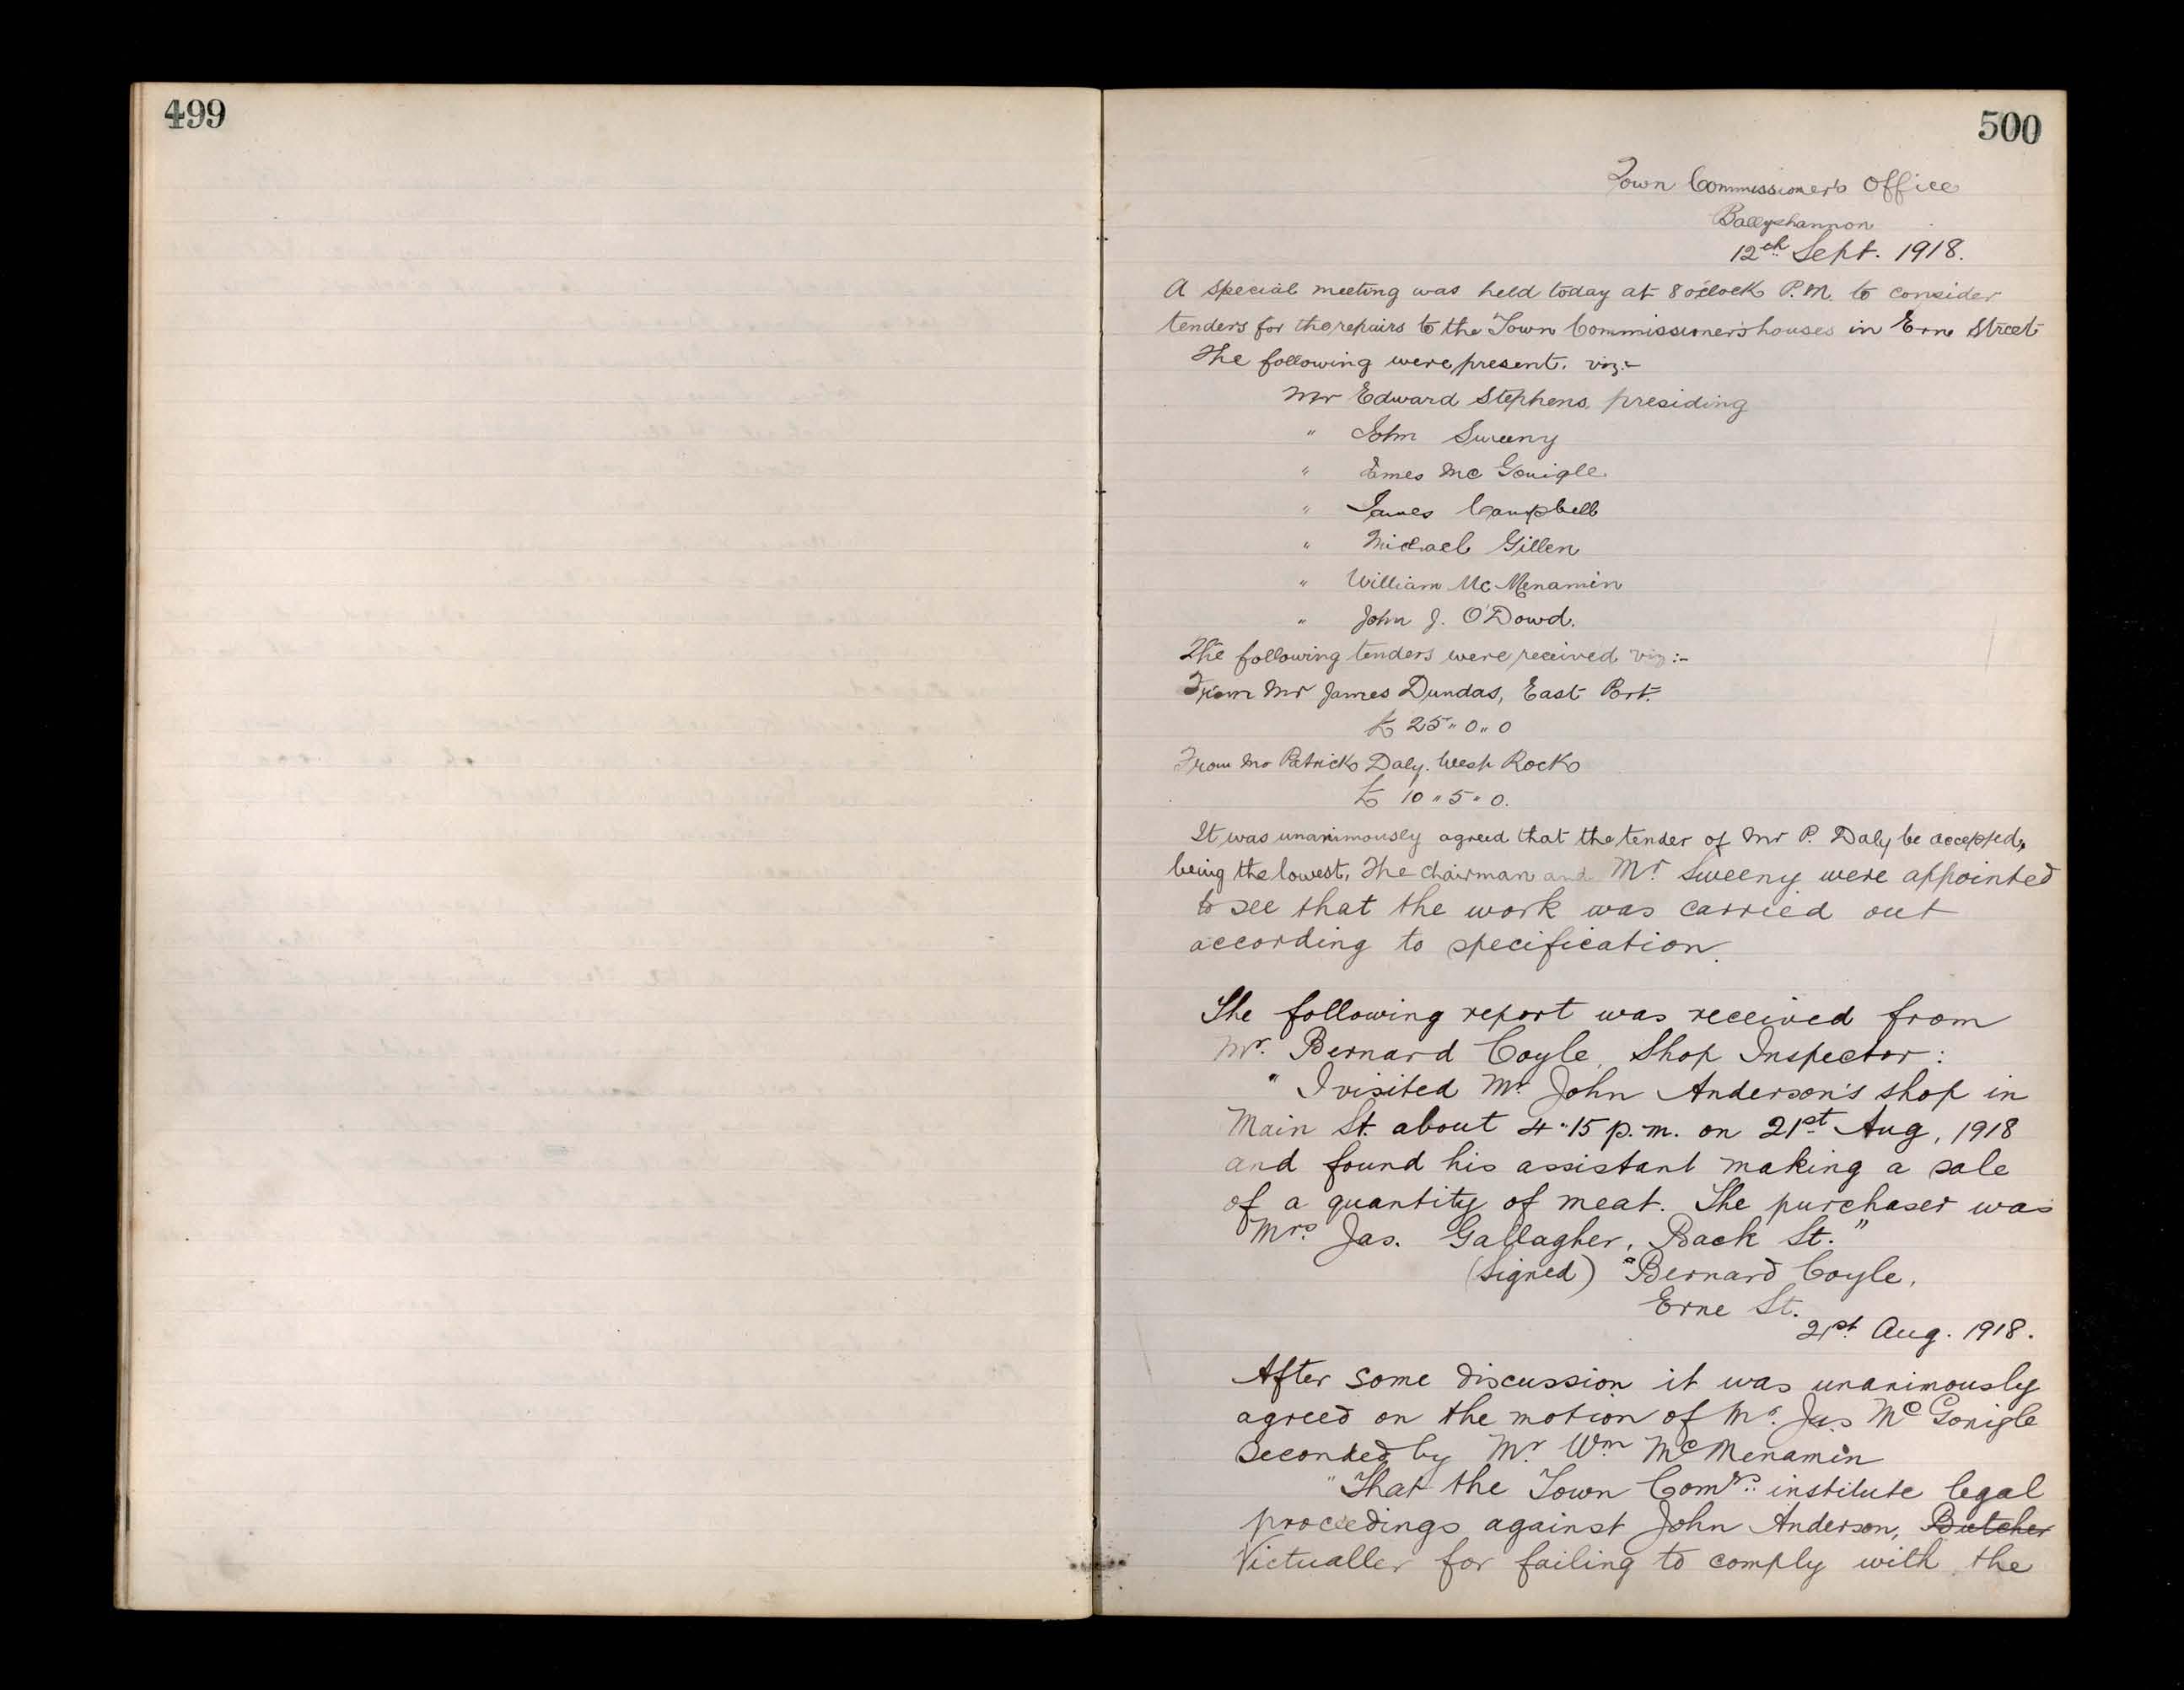 499
500
Town Commissioner's Office
Ballyshannon
12th Sept. 1918.
A special meeting was held today at 8 o'clock P.M. to consider
tenders for the repairs to the Town Commissioner's houses in Erne Street
The following were present. viz:-
Mr Edward Stephens, presiding
" John Sweeny
" James Mc Gonigle
" James Campbell
" Michael Gillen
" William Mc Menamin
" John J. O'Dowd.
The following tenders were received viz:-
From Mr James Dundas, East Port.
£ 25 " 0 " 0
From Mr Patrick Daly. West Rock
£ 10 " 5 " 0.
It was unanimously agreed that the tender of Mr P. Daly be accepted,
being the lowest. The Chairman and Mr. Sweeny were appointed
to see that the work was carried out
according to specification.
The following report was received from
Mr. Bernard Coyle, Shop Inspector:
" I visited Mr. John Anderson's shop in
Main St. about 4.15 p.m. on 21st Aug, 1918
and found his assistant making a sale
of a quantity of meat. The purchaser was
Mrs. Jas. Gallagher, Back St."
(Signed) "Bernard Coyle,
Erne St.
21st Aug. 1918.
After some discussion it was unanimously
agreed on the motion of Mr. Jas Mc Gonigle
seconded by Mr. Wm Mc Menamin
"That the Town Comrs. institute legal
proceedings against John Anderson, Butcher
Victualler for failing to comply with the